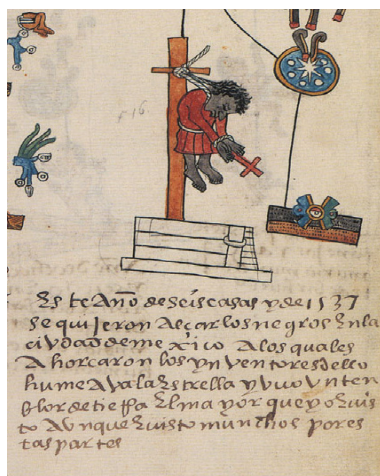 f 16.
Este Año de seis casas y de 1537
se quijeron Alçar los negros en la
ciudad de mexico A los quales
Ahorcaron los ynventores dello
humeAva la estrella y uvo un ten
blor de tierra El mayor que yo e vis
to Aunque e visto munchos por es
tas partes